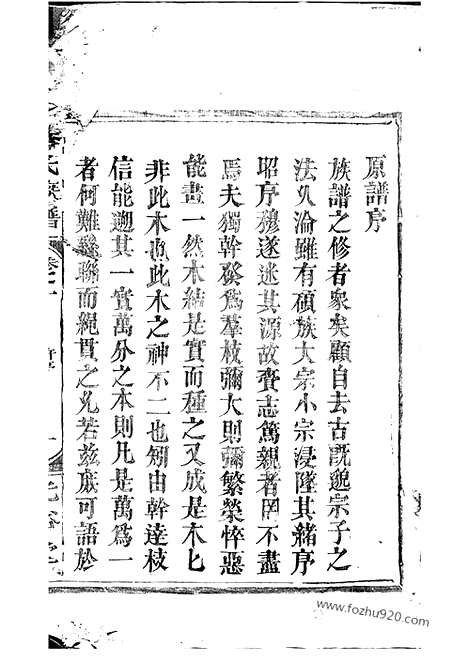 原譜序
族譜之修者衆矣顧自去古既邈宗子之
法久淪雖有碩族大宗小宗浸墜其緒序
昭序穆遂迷其源故賚志篤親者罔不盡
焉夫獨幹發爲羣枝彌大則彌繁榮悴惡
能畫一然木結是實而種之又成是木匕
非此木也此木之神不二也矧由幹達枝
信能遡其一實萬分之本則凡是萬爲一
者何難聯而繩貫之凡若兹庶可語於
氏族譜
www.fozhu920.com